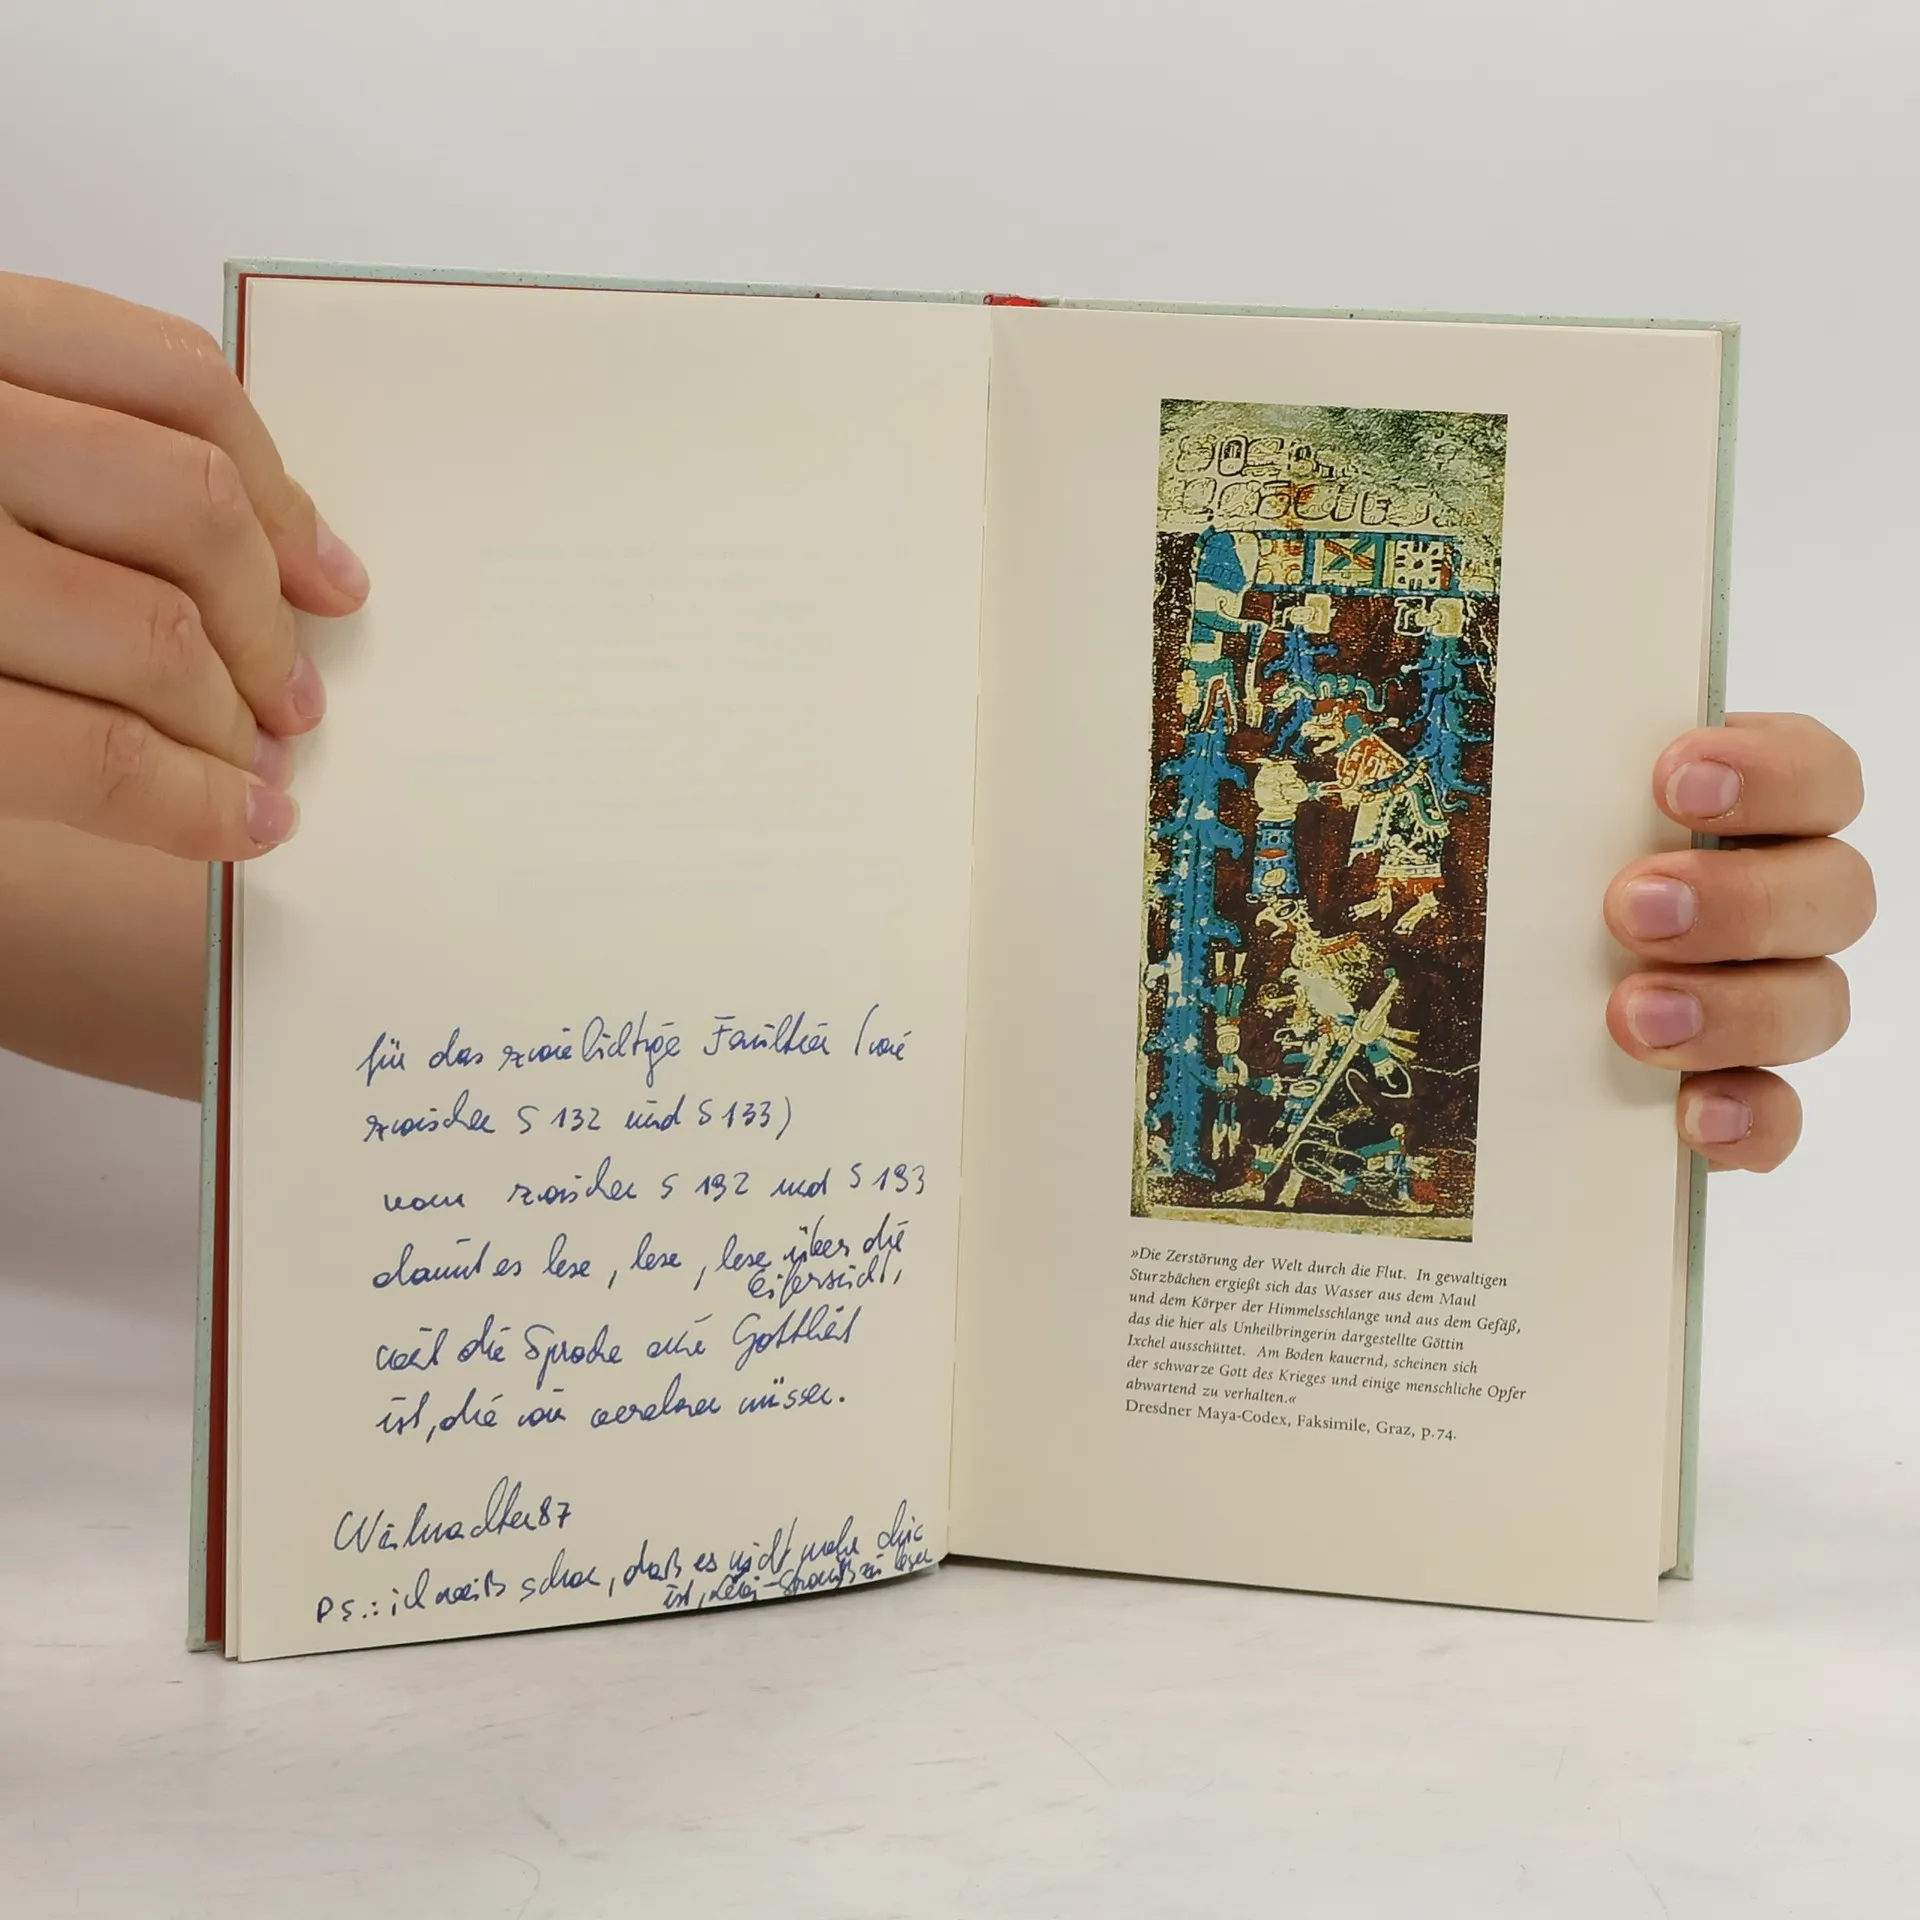 für das zwielichtige Faultier (wie
zwischen S 132 und S 133)
vom zwischen S 192 und S 193
damit es lese, lese, lese über die
Eifersucht,
weil die Sprache eine Gottheit
ist, die wir verehren müssen.
Weihnachten 87
PS.: ich weiß schon, daß es nicht mehr chic
ist, Lévi-Strauß zu lesen
»Die Zerstörung der Welt durch die Flut. In gewaltigen
Sturzbächen ergießt sich das Wasser aus dem Maul
und dem Körper der Himmelsschlange und aus dem Gefäß,
das die hier als Unheilbringerin dargestellte Göttin
Ixchel ausschüttet. Am Boden kauernd, scheinen sich
der schwarze Gott des Krieges und einige menschliche Opfer
abwartend zu verhalten.«
Dresdner Maya-Codex, Faksimile, Graz, p.74.